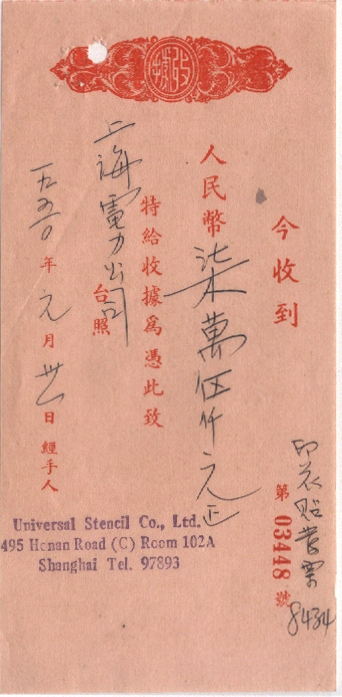 收據
今收到
人民幣柒萬伍仟元正
特給收據為憑此致
上海電力公司
台照
一九五〇年元月卅一日
經手人
第03448號
印花貼發票
8434
Universal Stencil Co., Ltd.
495 Honan Road (C) Room 102A
Shanghai Tel. 97893